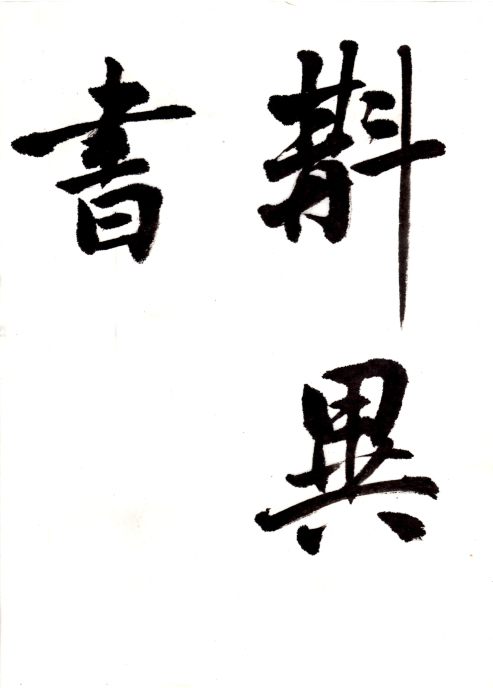 斠異
書